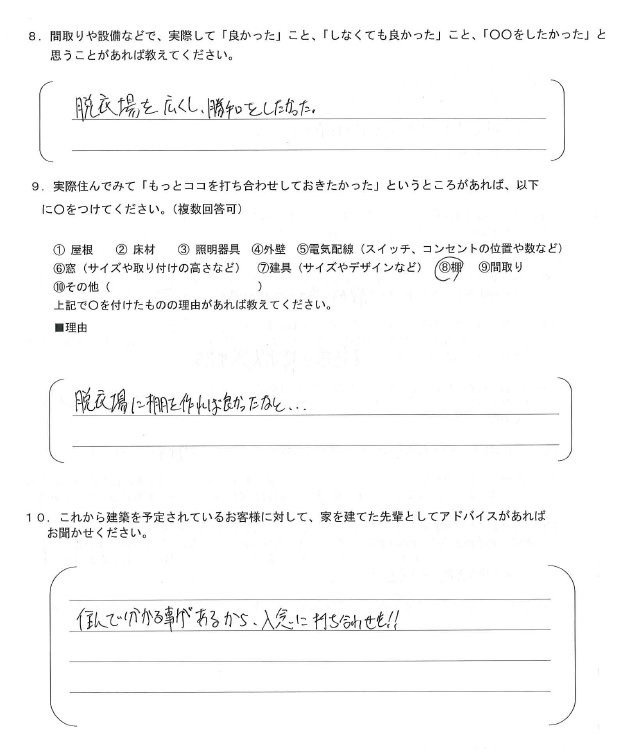 ８．間取りや設備などで、実際して「良かった」こと、「しなくても良かった」こと、「〇〇をしたかった」と
思うことがあれば教えてください。
脱衣場を広くし、勝手口をしたかった。
９．実際住んでみて「もっとココを打ち合わせしておきたかった」というところがあれば、以下
に〇をつけてください。（複数回答可）
① 屋根　② 床材　③ 照明器具　④外壁　⑤電気配線（スイッチ、コンセントの位置や数など）
⑥窓（サイズや取り付けの高さなど）　⑦建具（サイズやデザインなど）　⑧棚　⑨間取り
⑩その他（　　　　　　　　　　　　）
上記で〇を付けたものの理由があれば教えてください。
■理由
脱衣場に棚を作れば良かったなと...
１０．これから建築を予定されているお客様に対して、家を建てた先輩としてアドバイスがあれば
お聞かせください。
住んで分かる事があるから、入念に打ち合わせを!!